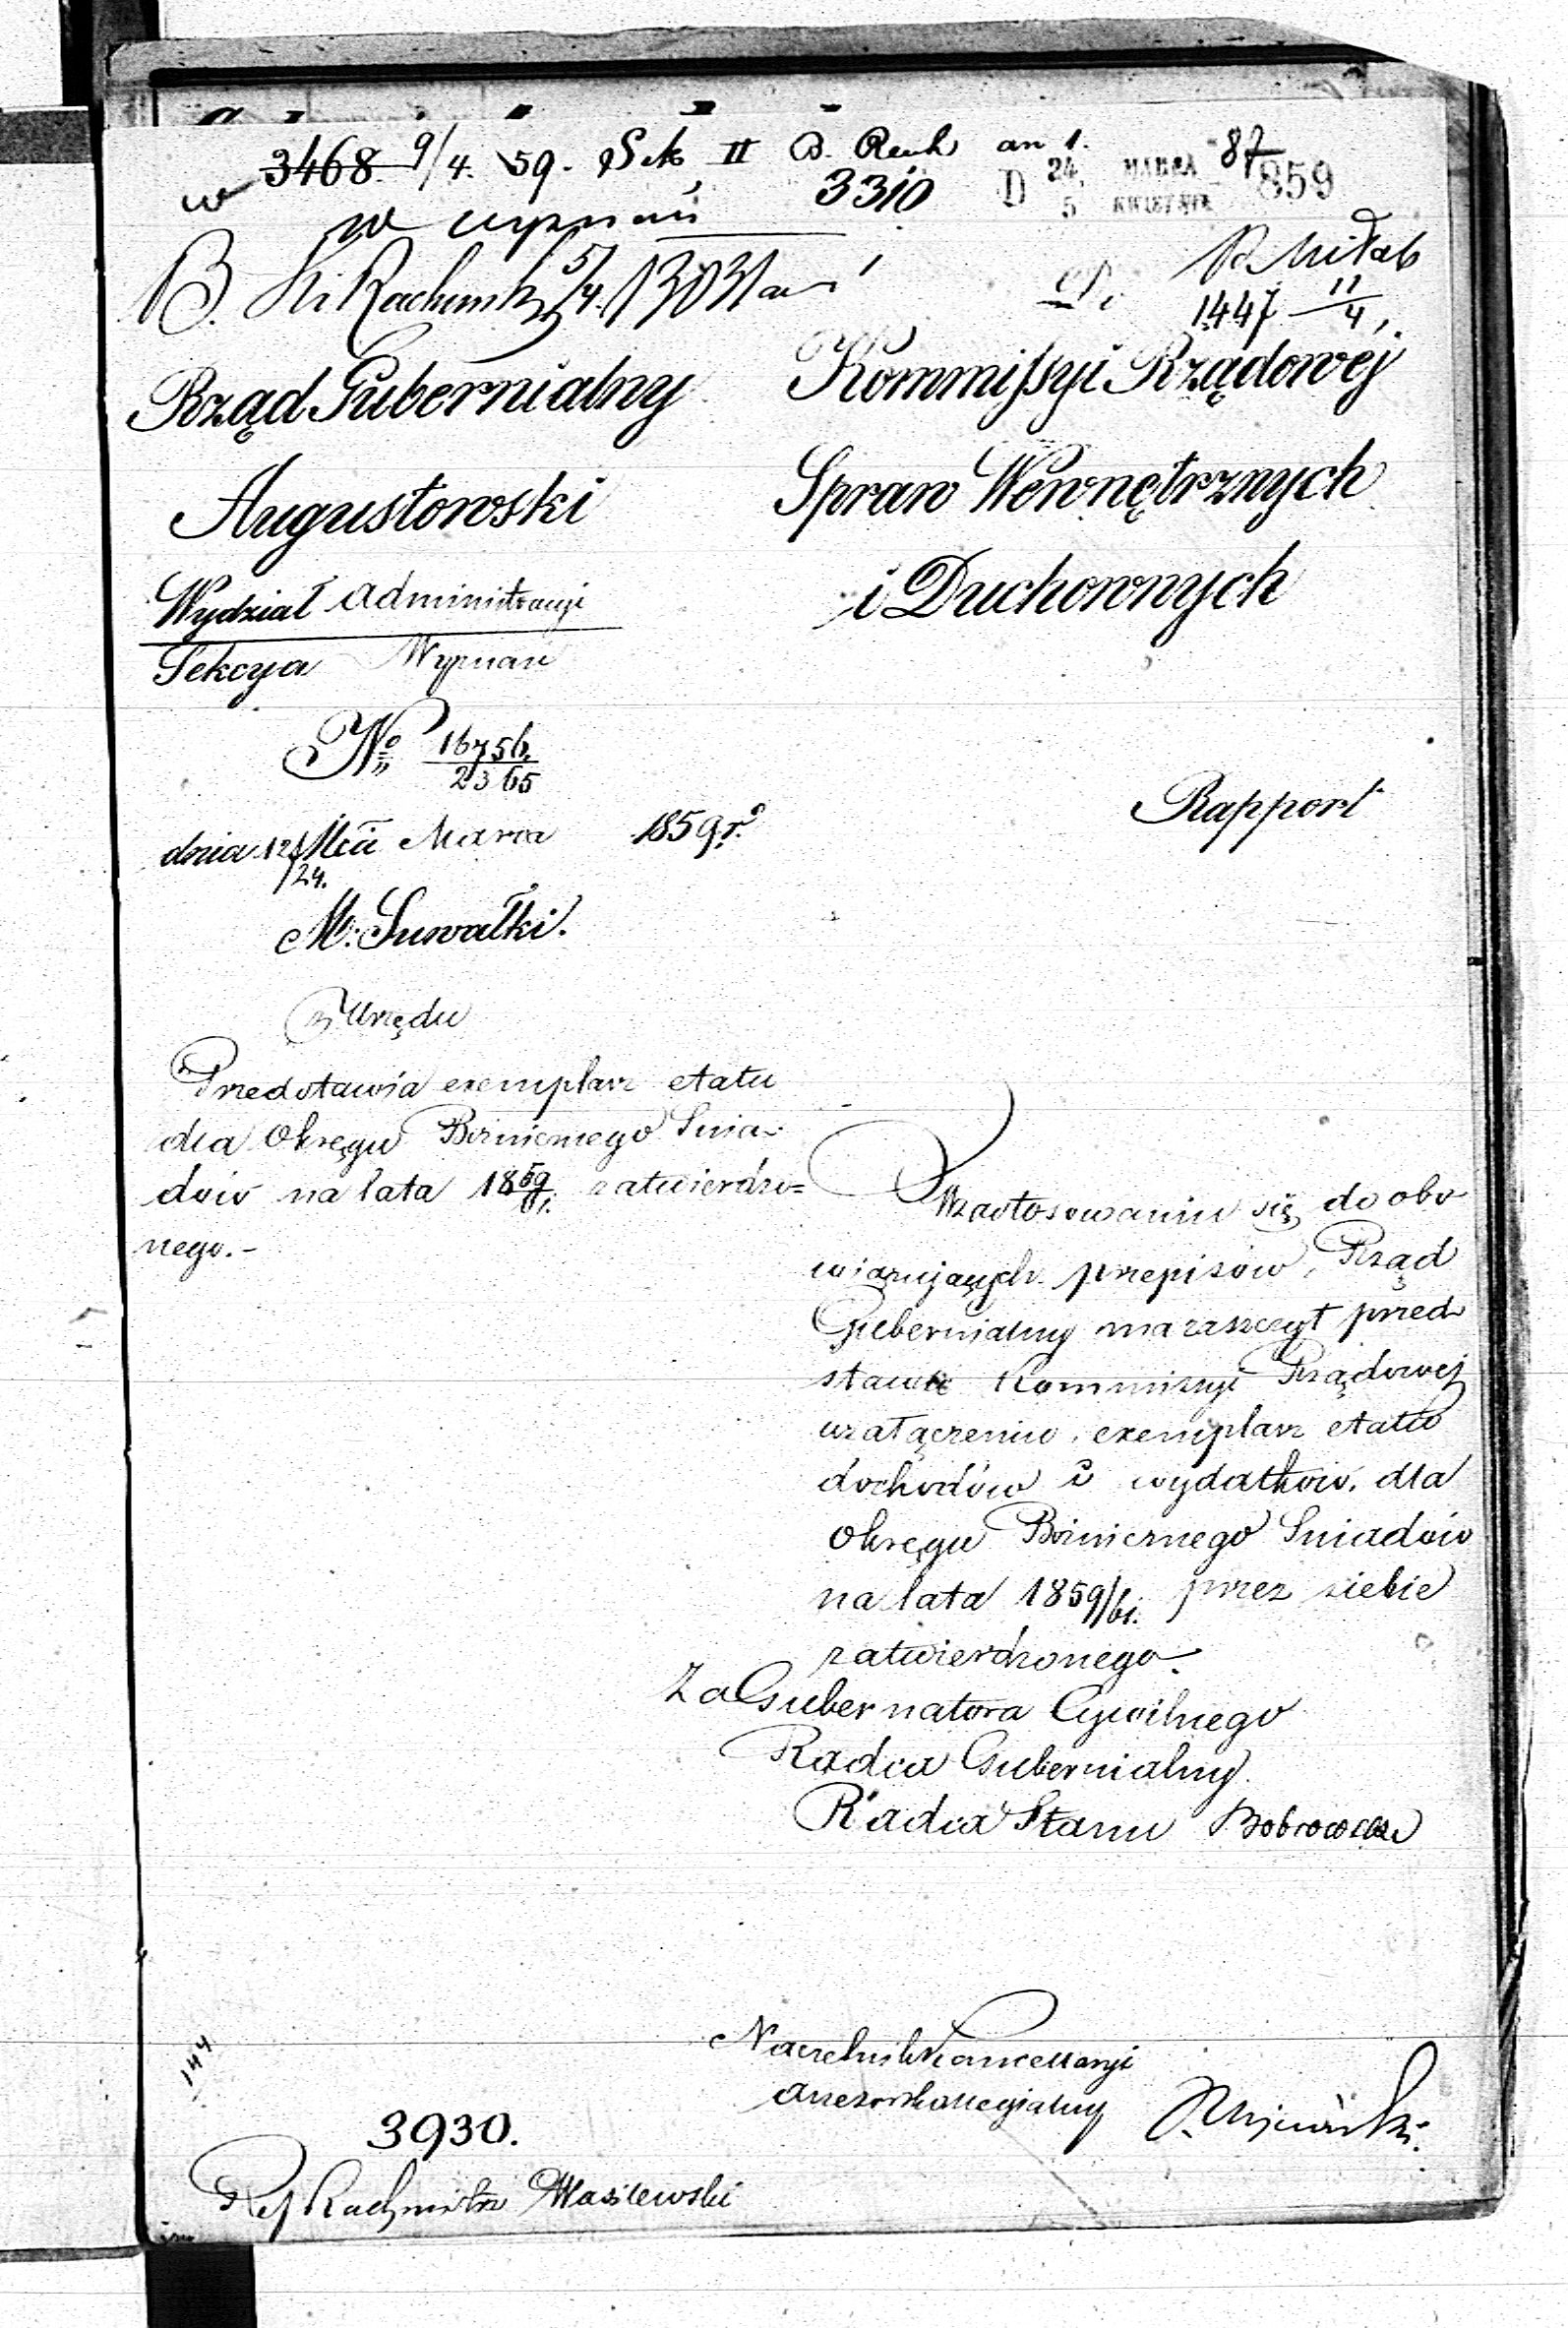 3468. 9/4. 59. Sek II B. Rach an 1. 87
w 3310 D 24 MARCA 5 KWIETNIA 859
w wyznań
B. 5/4
1447 11/4
Rząd Gubernialny
Augustowski
Wydział Administracyi
Sekcya Wyznań
No 16756/2365
dnia 12/24. Mca Marca 1859 r.
M. Suwałki.
Kommissyi Rządowej
Spraw Wewnętrznych
i Duchownych
Rapport
Z Urzędu
Przedstawia exemplarz etatu
dla Okręgu Bożnicznego Śnia-
dów na lata 1859/61. zatwierdzo=
nego.-
W zastosowaniu się do obo
wiązujących przepisów, Rząd
Gubernialny ma zaszczyt przed
stawić Kommissyi Rządowej
w załączeniu, exemplarz etatu
dochodów i wydatków, dla
Okręgu Bożnicznego Śniadów
na lata 1859/61. przez siebie
zatwierdzonego.
Za Gubernatora Cywilnego
Radca Gubernialny.
Radca Stanu Bobrowski
Naczelnik Kancellaryi
Assesor Kollegialny
144
3930.
Wasilewski